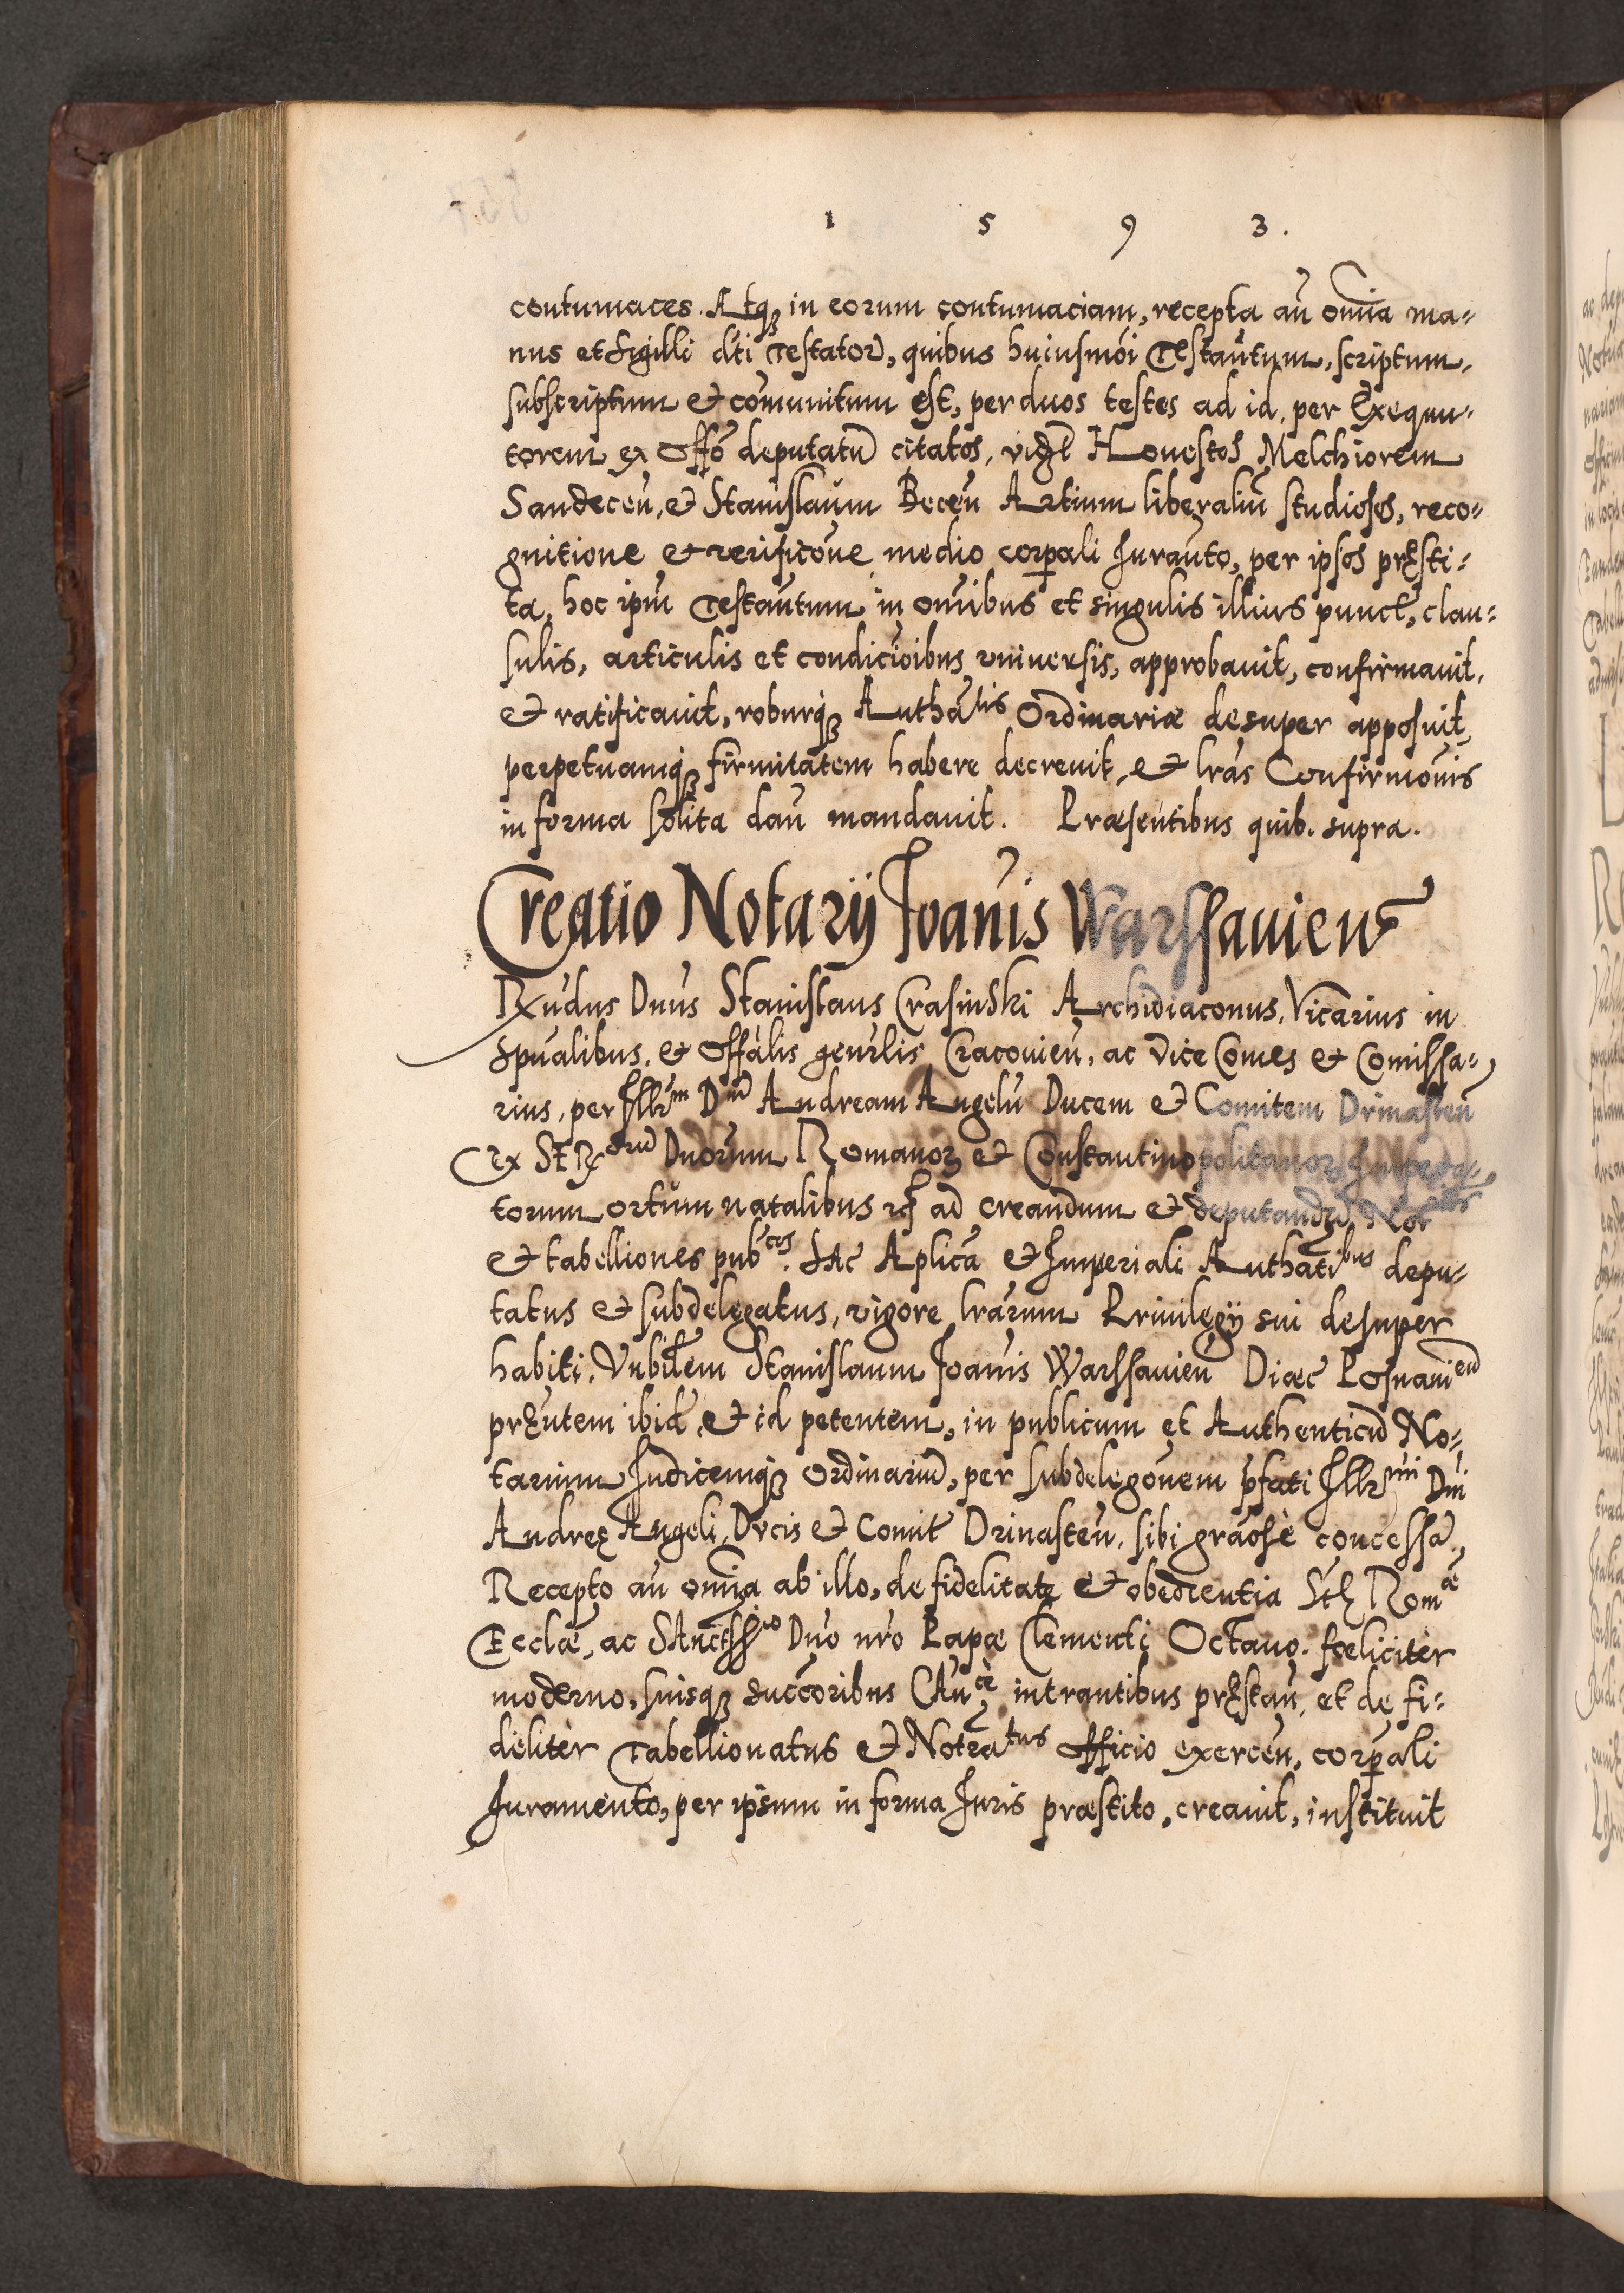 1 5 9 3.
contumaces. Atq₃ in eorum contumaciam, recepta an̄ om̄ia ma-
nus et Sigilli d̄ti Testator̄, quibus huiusm̄oi Testan̄tum, scriptum,
subscriptum et com̄unitum est, per duos testes ad id, per Exequu-
torem ex Offō deputatū citatos, vidzl̄ Honestos Melchiorem
Sandecen̄, et Stanislaum Becen̄ Artium liberaliū studiosos, reco-
gnitione et verificōne medio corp̄ali Juran̄to, per ipsos pręsti-
ta, hoc ip̄m Testan̄tum in om̄ibus et singulis illius punct̄, clau-
sulis, articulis et condicīoibus vniuersis, approbauit, confirmauit,
et ratificauit, roburq₃ Authātis Ordinariæ desuper apposuit,
perpetuamq₃ firmitatem habere decreuit, et l̄ras Confirmōnis
in forma solita dan̄ mandauit. Præsentibus quib. supra.
Creatio Notarij Joan̄is Warssauien̄
Rx̄ndus Dn̄us Stanislaus Crasinski Archidiaconus, Vicarius in
Sp̄ualibus, et Offālis gen̄rlis Cracouien̄, ac Vice Comes et Comissa-
rius, per Illrm̄ Dnū Andream Angelū Ducem et Comitem Drinasten̄
ex St Rxorū Dn̄orum Romanoꝝ et Constantinopolitanoꝝ Impera-
torum ortum natalibus rc̄ ad creandum et deputandū Notrios
et tabelliones pubcos. Sac Ap̄lica et Imperiali Authātibus depu-
tatus et subdelegatus, vigore l̄rarum Priuilegij sui desuper
habiti, Vn̄bilem Stanislaum Joan̄is Warssauien̄ Diœc Posnanien̄
pręn̄tem ibid̄ et id petentem, in publicum et Authenticū No-
tarium Judicemq₃ ordinariū, per subdelegōnem p̄fati Illrmi Dn̄i
Andreę Angeli, Dvcis et Comit̄ Drinasten̄, sibi grāosè concessā,
Recepto an̄ om̄ia ab illo, de fidelitate et obedientia Stę Romæ
Ecclæ, ac SAnctssio Dn̄o nr̄o Papæ Clementi Octauo, fœliciter
moderno, suisq₃ succ̄oribus Can̄cè intrantibus pręstan̄, et de fi-
deliter Tabellionatus et Notrātus officio exercen̄, corp̄ali
Juramento, per ipsum in forma Juris præstito, creauit, instituit